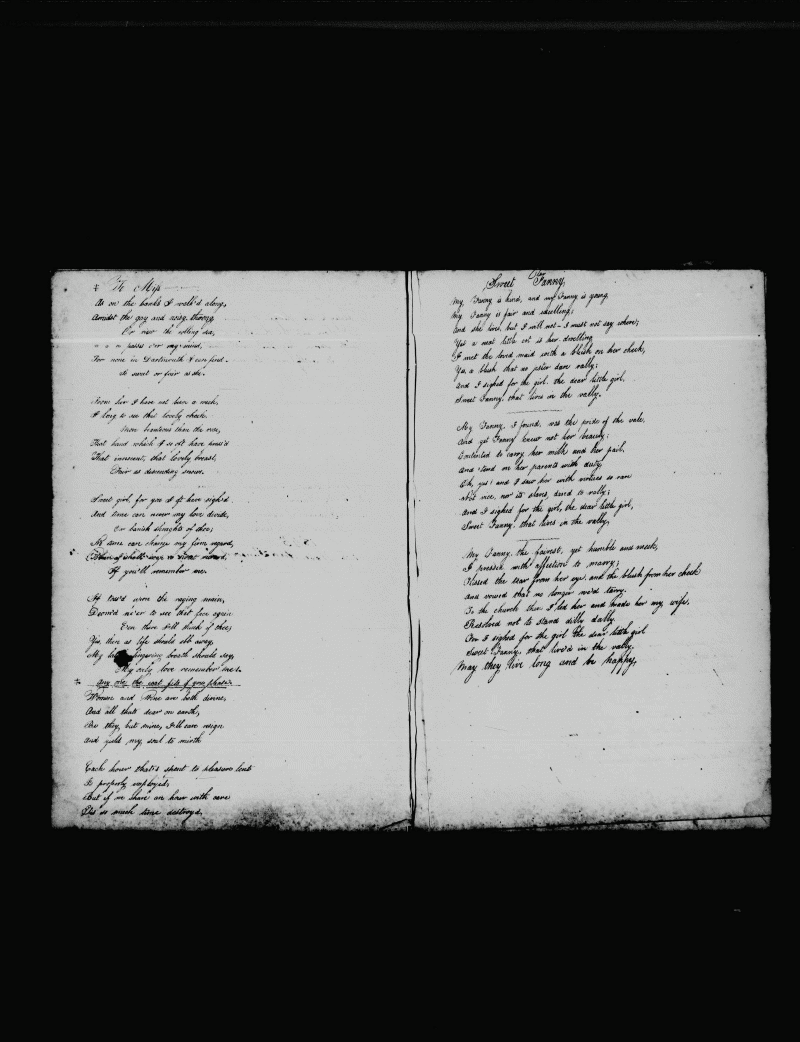 To Miss
As on the banks I walk'd along,
Amidst the gay and noisy throng
Or near the rolling sea,
passes o'er my mind,
For none in Dartmouth I can find
So sweet or fair as she.
From her I have not been a week,
I long to see that lovely cheek
More beauteous than the rose,
That hand which I so oft have press'd
That innocent, that lovely breast,
Fair as descending snows.
Sweet girl, for you I oft have sigh'd
And time can never my love divide,
Or banish thoughts of thee;
No time can change my firm regard,
If you'll remember me.
If toss'd upon the raging main,
Doom'd ne'er to see thee fair again
Even there I'll think of thee;
Yes, then as life should ebb away,
My expiring breath should say,
My only love remember me.
any one the
Women and Wine are both divine,
And all that's dear on earth,
Be they, but mine, I'll care resign
And yield my soul to mirth
Each hour that's spent to pleasure lent
Is properly employed,
But if we share an hour with care
'Tis so much time destroyed.
Sweet Fanny,
My Fanny is kind, and my Fanny is young
My Fanny is fair and excelling;
And she lives, but I will not - I must not say where;
Yes a neat little cot is her dwelling
I met the loved maid with a blush on her cheek,
Yes, a blush that no sister dare rally;
And I sighed for the girl, the dear little girl,
Sweet Fanny, that lives in the vally.
My Fanny, I found, was the pride of the vale,
And yet Fanny knew not her beauty;
Contented to carry her milk and her pail,
And tend on her parents with duty,
Oh, yes! and I saw her with virtues so rare
that vice, nor its slaves, dared to rally;
And I sighed for the girl, the dear little girl,
Sweet Fanny, that lives in the vally,
My Fanny, the fairest, yet humble and meek,
I pressed with affection to marry;
Kissed the tear from her eye, and the blush from her cheek
And vowed that no longer we'd tarry.
To the church then I led her and made her my wife,
Resolved not to stand dilly dally
For I sighed for the girl the dear little girl
Sweet Fanny, that liv'd in the vally.
May they live long and be happy,